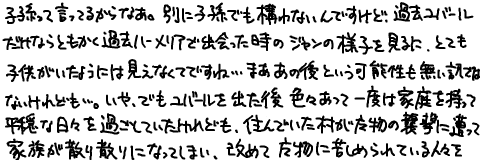 子孫って言ってるからなあ。別に子孫でも構わないんですけど、過去ユバール
だけならともかく過去ハーメリアで出会った時のジャンの様子を見るに、とても
子供がいたようには見えなくてですね…まああの後という可能性も無い訳では
ないけれども…。いや、でもユバールを出た後色々あって一度は家庭を持って
平穏な日々を過ごしていたけれども、住んでいた村が魔物の襲撃に遭って
家族が散り散りになってしまい、改めて魔物に苦しめられている人々を